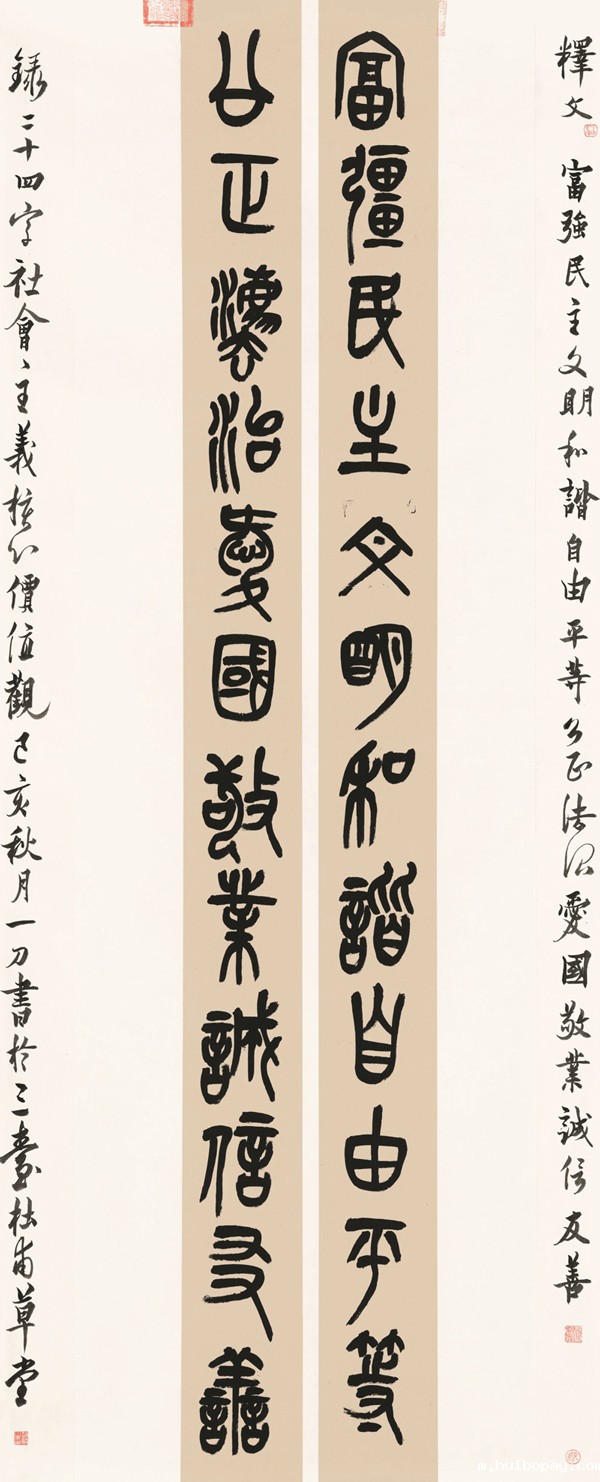 釋文 富強民主文明和諧自由平等公正法治愛國敬業誠信友善
富彊民主文明和諧自由平等
公正灋治愛國敬業誠信友善
錄二十四字社會主義核心價值觀己亥秋月一刀書於三臺杜甫草堂